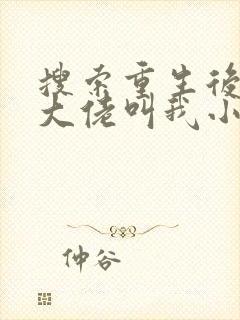 搜索重生後
大佬叫我小
仲谷